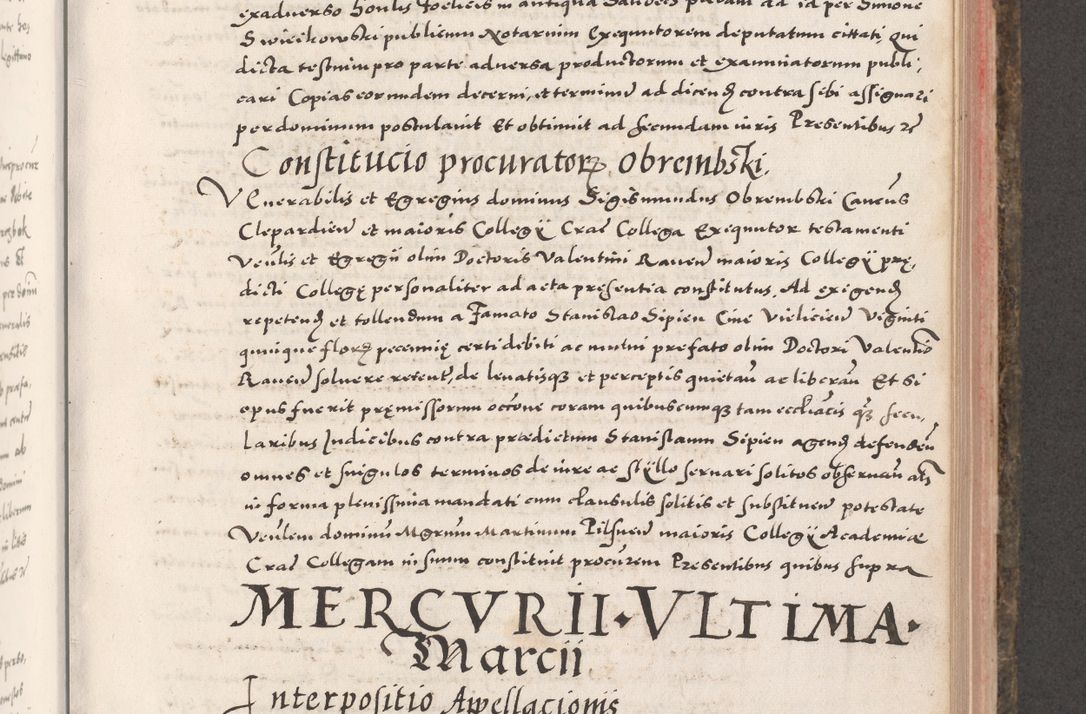 exadverso
Swieikowski publicum Notarium Exequutorem deputatum cittati, qui
dicta testium pro parte adversa productorum et examinatorum publi,
cari Copias eorundem decerni, et terminū ad dicend contra sibi assignari
per dominum postulavit Et obtinuit ad secundam iuris Presentibus
Constitucio procurator Obrembski.
VEnerabilis et Egregius dominus Sigismundus Obrembski Cancūs
Clepardien et maioris Collegÿ Crac Collega Exequutor testamenti
Venlis et Egregii olim Doctoris Valentini Raven maioris Collegÿ prę,
dicti Collegę personaliter ad acta pręsentia constitutus, Ad exigend
repetend et tollendum a Famato Stanislao Sipien Cive Vielicien Viginti
quinque flor pecunię certi debiti ac mutui prefato olim Doctori Valentio
Raven solvere retent, de levatisq et perceptis quietan ac liberan Et si
opus fuerit pręmissorum occōne coram quibuscumq tam eccliacis q̄ secu,
laribus Iudicibus contra prædictum Stanislaum Sipien agend defenden
omnes et singulos terminos de iure ac stÿllo servari solitos observan
in forma plenissima mandati cum clausulis solitis et substituen potestate
Venlem dominū Mgrum Martinum Pilsnen maioris Collegÿ Academiæ
Crac Collegam in suum constituit procūrem Presentibus quibus supra
MERCVRII·VLTIMA·
Marcii
Interpositio Appellacionis